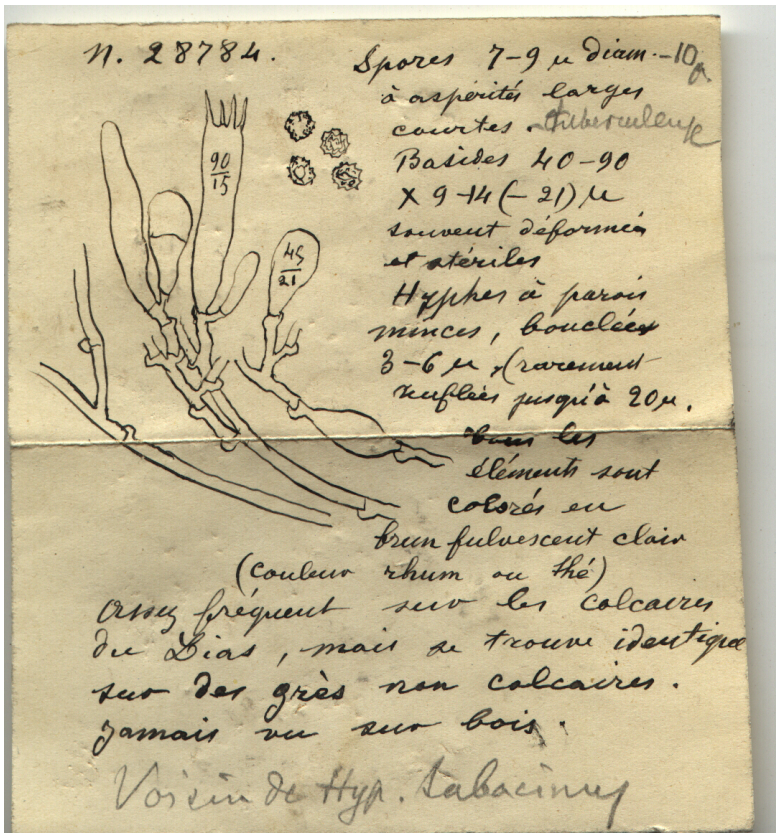 n. 28784.
Spores 7-9 µ diam.-10µ
à aspérités larges
courtes. tuberculeuse
Basides 40-90
x 9-14 (-21) µ
souvent déformées
et stériles
Hyphes à parois
minces, bouclées
3-6 µ, (rarement
renflées jusqu'à 20µ.
tous les
éléments sont
colorés en
brun fulvescent clair
(couleur rhum ou thé)
assez fréquent sur les calcaires
du Lias, mais se trouve identique
sur des grès non calcaires.
jamais vu sur bois.
Voisin de Hyp. tabacinus
90
15
45
21